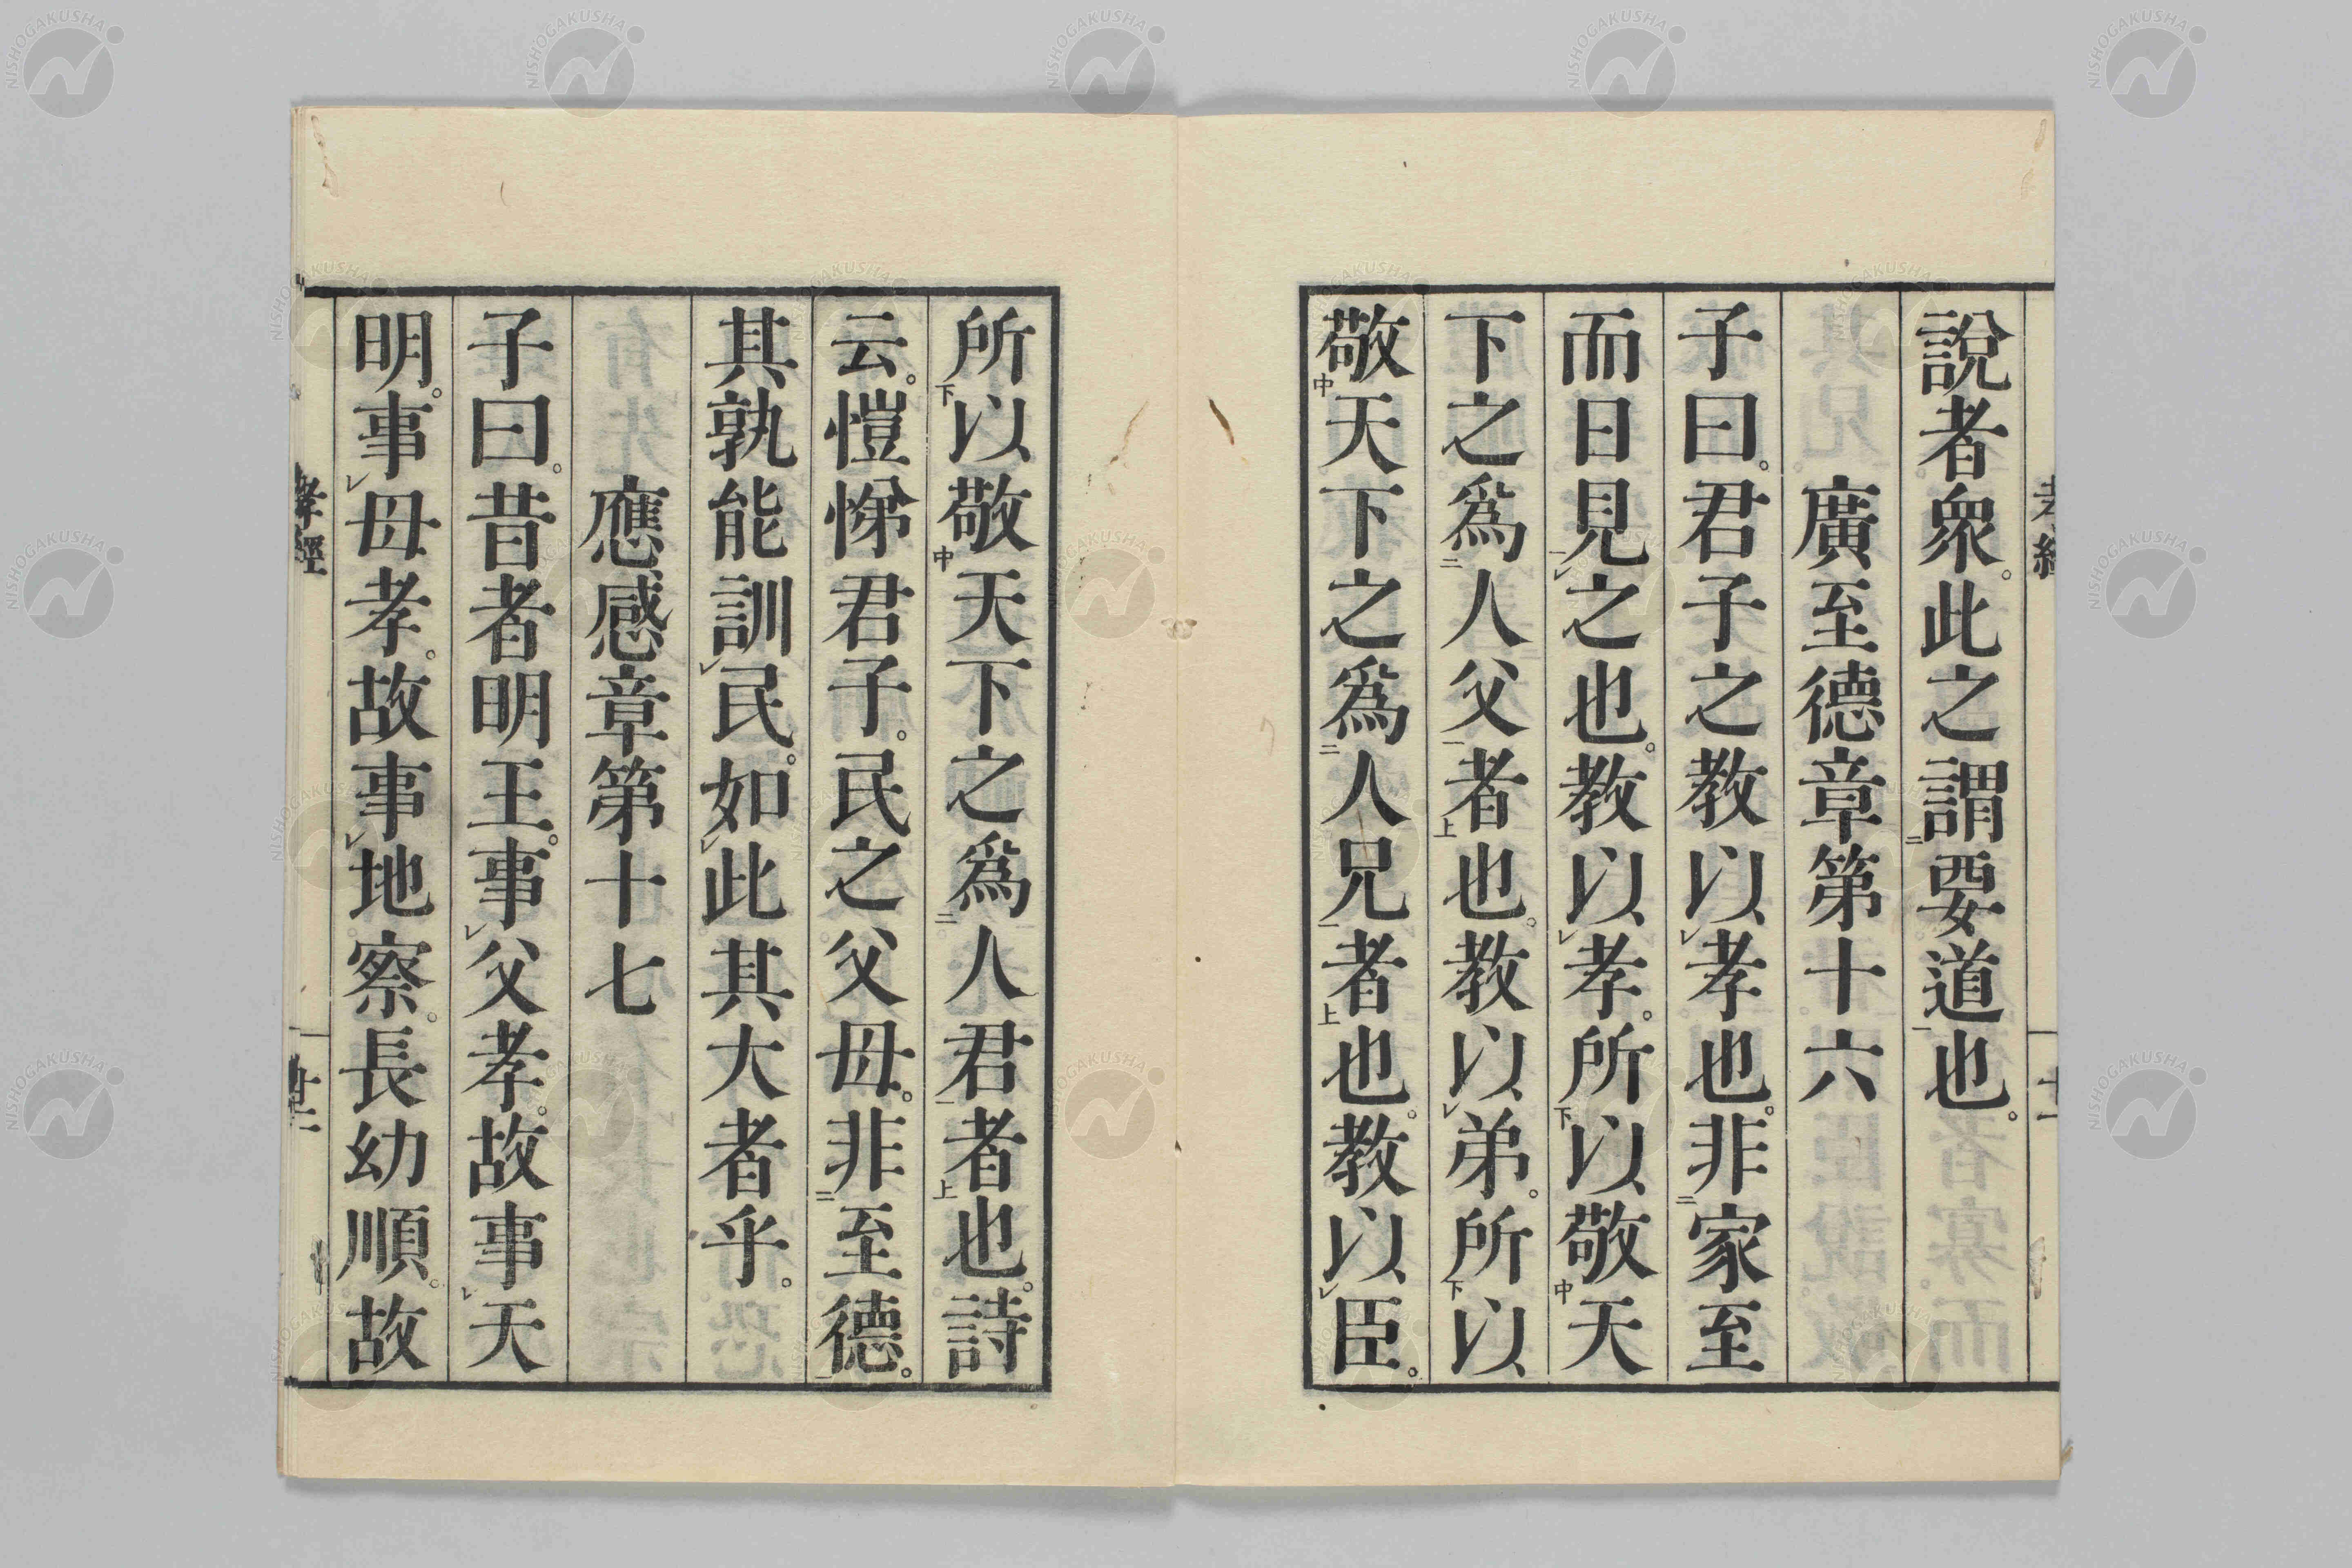 說者衆。此之謂二要道一也。
廣至德章第十六
子曰。君子之教以レ孝也。非二家至
而日見一レ之也。教以レ孝。所下以敬中天
下之爲二人父一者上也。教以レ弟。所下以
敬中天下之爲二人兄一者上也。教以レ臣。
所下以敬中天下之爲二人君一者上也。詩
云。愷悌君子。民之父母。非二至德。一
其孰能訓レ民。如レ此其大者乎。
應感章第十七
子曰。昔者明王。事レ父孝。故事レ天
明。事レ母孝。故事レ地察。長幼順。故
孝經
NISHOGAKUSHA